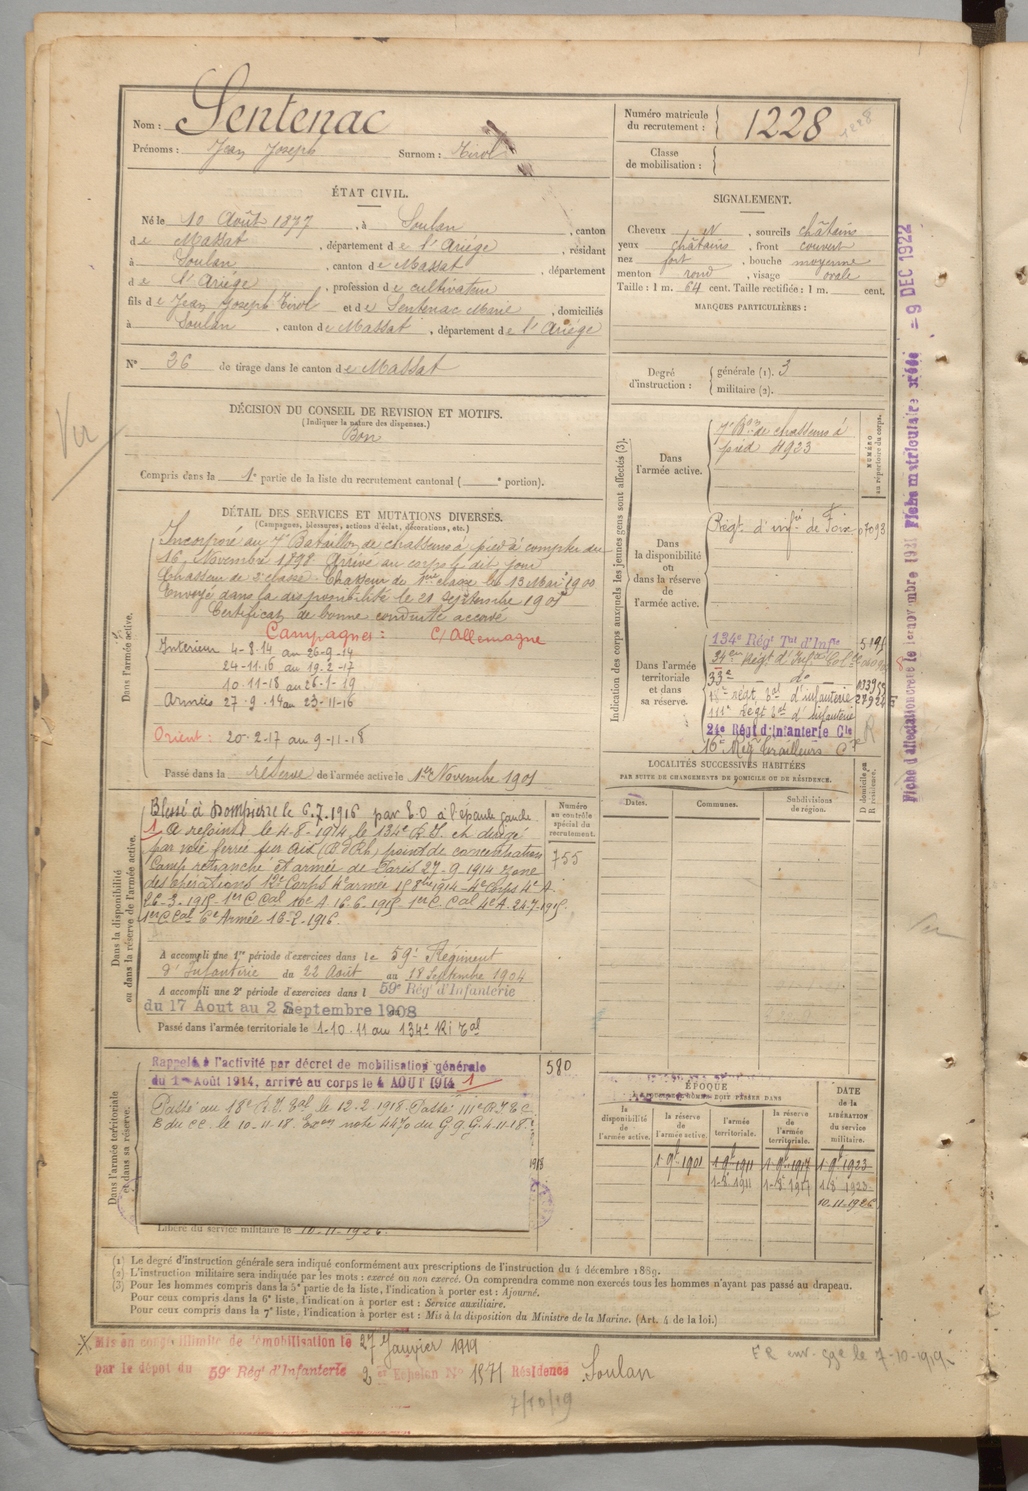 Nom : Sentenac
Prénoms : Jean Joseph Surnom : Tirol
Numéro matricule du recrutement : 1228
1228
Classe de mobilisation :
ÉTAT CIVIL.
Né le 10 Août 1877, à Soulan, canton
de Massat, département de l'Ariége, résidant
à Soulan, canton de Massat, département
de l'Ariége, profession de cultivateur
fils de Jean Joseph Tirol et de Sentenac Marie, domiciliés
à Soulan, canton de Massat, département de l'Ariége
N° 36 de tirage dans le canton de Massat
SIGNALEMENT.
Cheveux N, sourcils châtains
yeux châtains, front couvert
nez fort, bouche moyenne
menton rond, visage ovale
Taille : 1 m. 64 cent. Taille rectifiée : 1 m. cent.
MARQUES PARTICULIÈRES :
Degré d'instruction : générale (1). 3
militaire (2).
DÉCISION DU CONSEIL DE REVISION ET MOTIFS.
(Indiquer la nature des dispenses.)
Bon
Compris dans la 1e partie de la liste du recrutement cantonal ( e portion).
DÉTAIL DES SERVICES ET MUTATIONS DIVERSES.
(Campagnes, blessures, actions d'éclat, décorations, etc.)
Dans l'armée active.
Incorporé au 7e Bataillon de chasseurs à pied à compter du
16 Novembre 1898 Arrivé au corps le dit jour
Chasseur de 2e classe. Chasseur de 1ère classe le 13 Mai 1900
Envoyé dans la disponibilité le 21 Septembre 1901
Certificat de bonne conduite accordé
Campagnes : C/ Allemagne
Intérieur 4-8-14 au 26-9-14
24-11-16 au 19-2-17
10-11-18 au 26-1-19
Armées 27-9-14 au 23-11-16
Orient : 20-2-17 au 9-11-18
Passé dans la réserve de l'armée active le 1er Novembre 1901
Indication des corps auxquels les jeunes gens sont affectés (3).
NUMÉRO au répertoire du corps.
Dans l'armée active.
7e Bon de chasseurs à
pied 4923
Dans la disponibilité ou dans la réserve de l'armée active.
Régt d'infrie de Foix 07093
Dans l'armée territoriale et dans sa réserve.
134e Rég Tal d'Infie
33e do
18e régt tal d'infanterie
111e Régt tal d'infanterie
24e Régt d'Infanterie Cle
16e Régt tirailleurs
R
LOCALITÉS SUCCESSIVES HABITÉES
PAR SUITE DE CHANGEMENTS DE DOMICILE OU DE RÉSIDENCE.
Dates.
Communes.
Subdivisions de région.
D domicile ou R résidence.
Dans la disponibilité ou dans la réserve de l'armée active.
Numéro au contrôle spécial du recrutement.
755
Blessé à Dompierre le 6.7.1916 par E.O à l'épaule gauche
1 A rejoint le 4-8-1914 le 134e R.I. et dirigé
par voie ferrée sur Aix (B d Rh) point de concentration
Camp retranché et armée de Paris 27-9-1914 zone
des opérations 12e Corps 4e armée 15 8bre 1914 - 4e Corps 4e A.
26-3-1915 - 1er C Cal 10e A. 16.6.1915 - 1er C. Cal 4e A. 24.7.1915.
1er C Cal 6e Armée 16-2-1916.
A accompli une 1re période d'exercices dans le 59e Régiment
d'Infanterie du 22 Août au 18 Septembre 1904
A accompli une 2e période d'exercices dans l 59e Rég' d'Infanterie
du 17 Aout au 2 Septembre 1908
Passé dans l'armée territoriale le 1-10-11 au 134e RI tal
Dans l'armée territoriale et dans sa réserve.
580
Rappelé à l'activité par décret de mobilisation générale
du 1er Août 1914, arrivé au corps le 4 AOUT 1914 1
Passé au 18e R.I. tal le 12-2-1918. Passé 111e R.I.T.
le 10-11-18.
1918
Libéré du service militaire le 10-11-1926.
ÉPOQUE
la disponibilité de l'armée active.
la réserve de l'armée active.
l'armée territoriale.
la réserve de l'armée territoriale.
DATE de la LIBÉRATION du service militaire.
1-9bre 1901 1-9bre 1911 1-9bre 1917 1-9bre 1923
1-8-1911 1-8-1917 1-8-1923
10-11-1926
(1) Le degré d'instruction générale sera indiqué conformément aux prescriptions de l'instruction du 4 décembre 1889.
(2) L'instruction militaire sera indiquée par les mots : exercé ou non exercé. On comprendra comme non exercés tous les hommes n'ayant pas passé au drapeau.
(3) Pour les hommes compris dans la 5e partie de la liste, l'indication à porter est : Ajourné.
Pour ceux compris dans la 6e liste, l'indication à porter est : Service auxiliaire.
Pour ceux compris dans la 7e liste, l'indication à porter est : Mis à la disposition du Ministre de la Marine. (Art. 4 de la loi.)
Mis en congé illimité de démobilisation le 27 Janvier 1919
par le dépôt du 59e Rég' d'Infanterie 2e Echelon No 1571 Résidence Soulan
7/10/19
le 7-10-1919
Fiche matriculaire créée = 9 DEC 1922